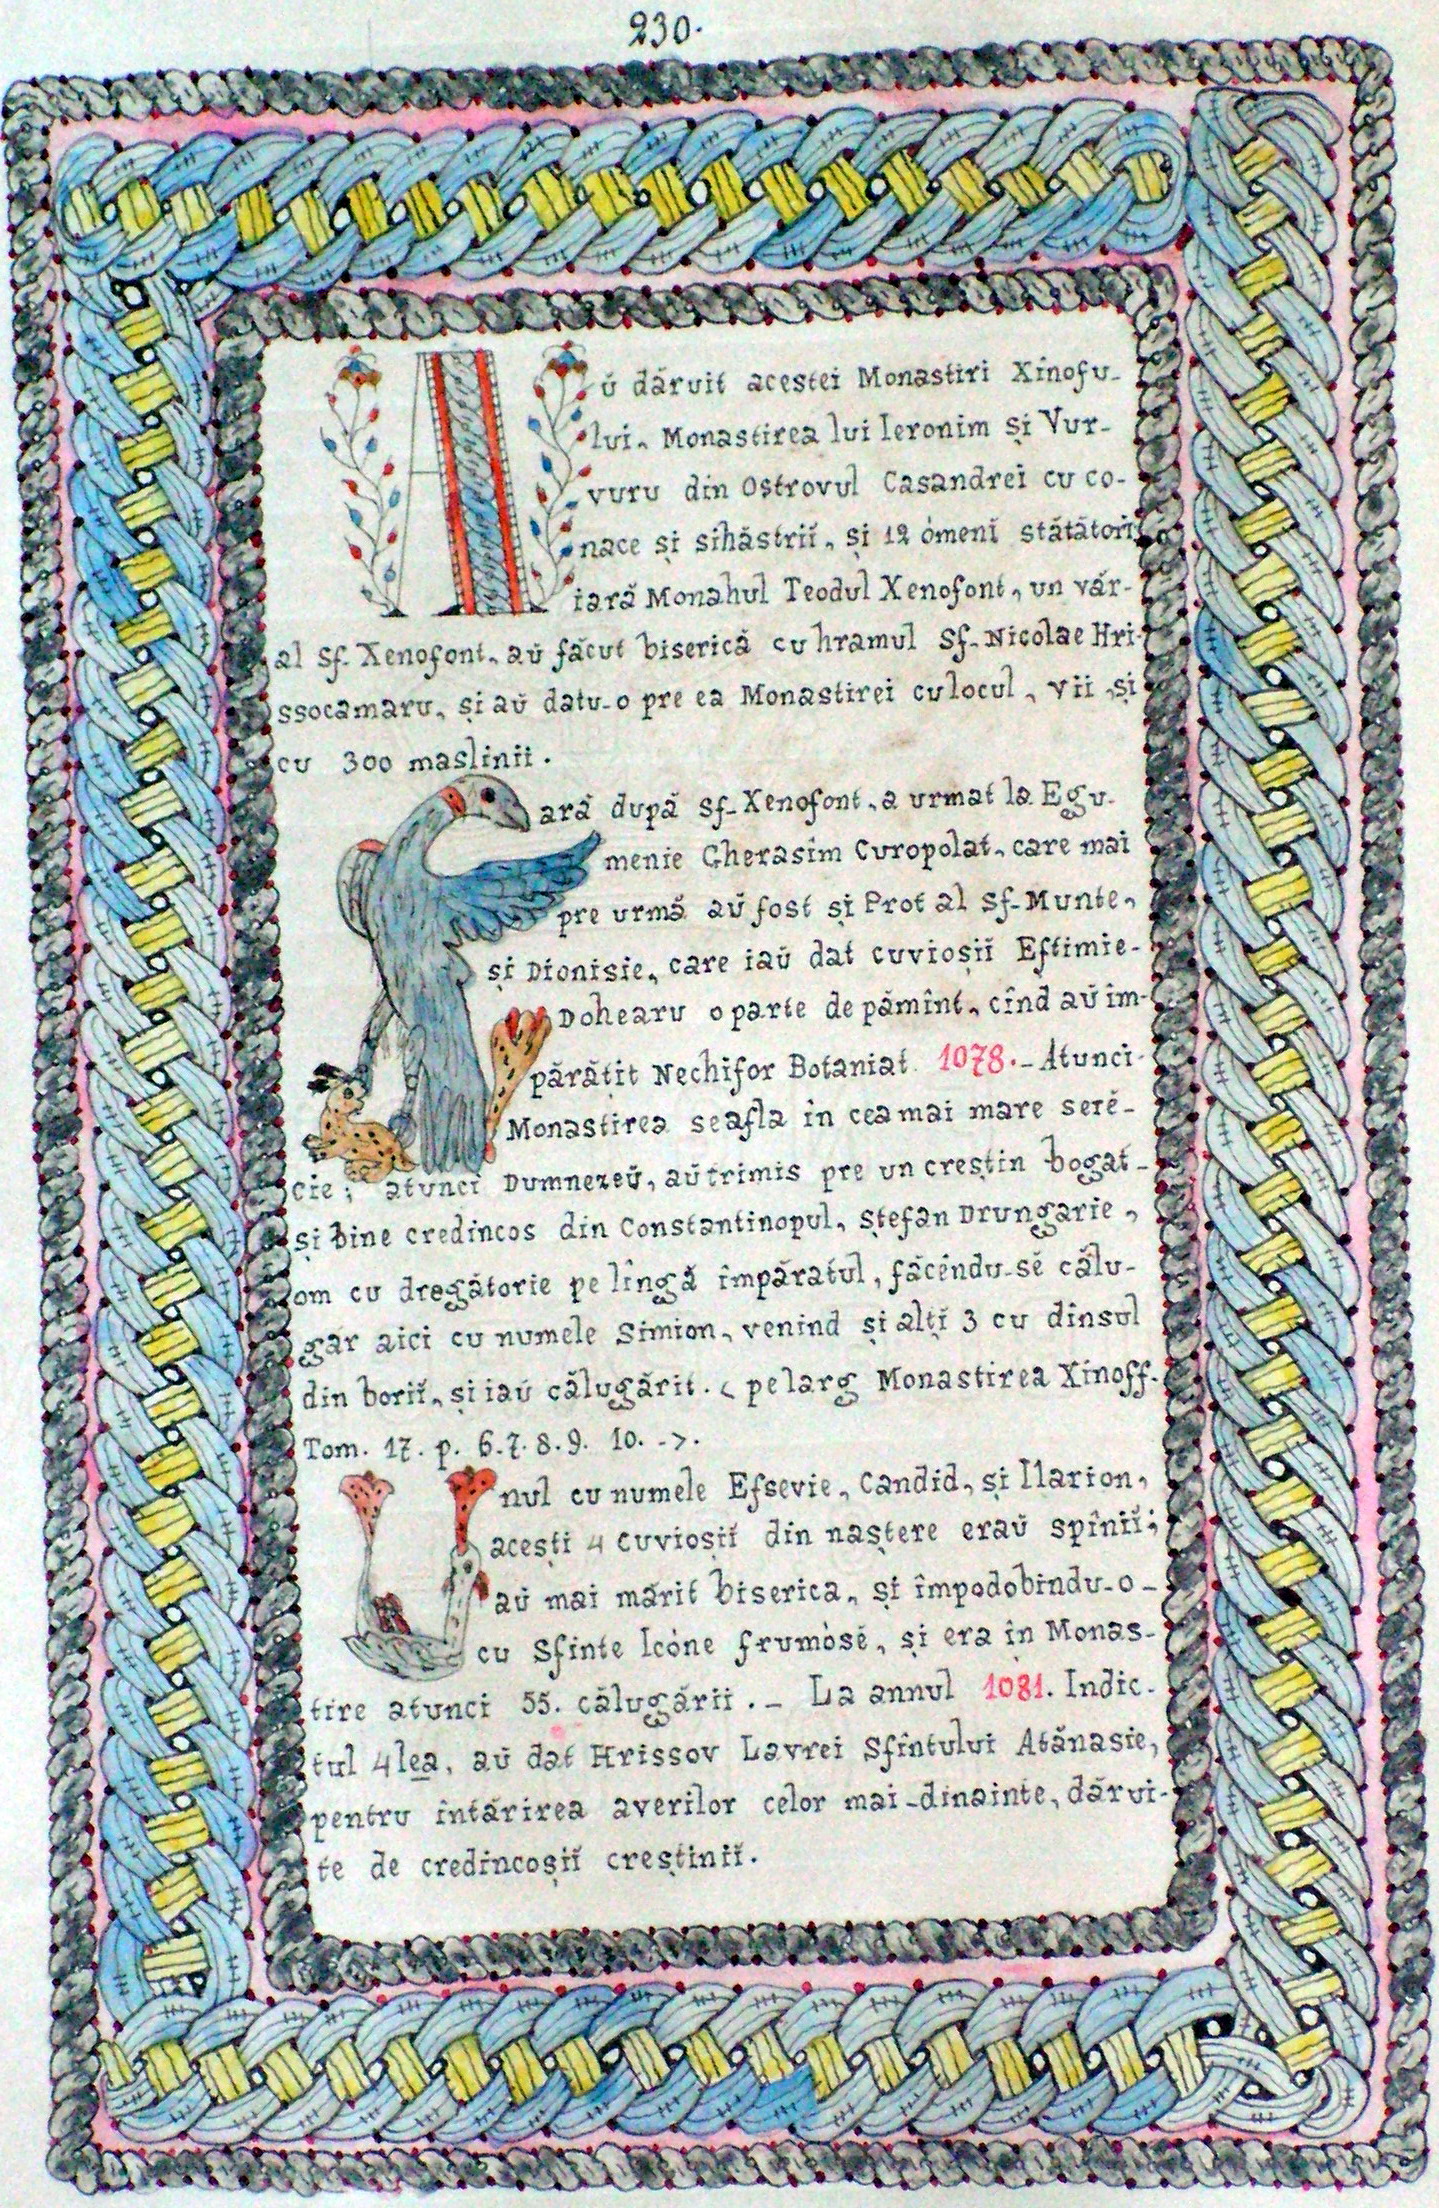 230.
Aŭ dăruit acestei Monastiri Xinofu-
lui, Monastirea lui Ieronim și Vur-
vuru din Ostrovul Casandrei cu co-
nace și sihăstrii, și 12 ómeni stătători,
iară Monahul Teodul Xenofont, un văr-
al Sf. Xenofont, aŭ făcut biserică cu hramul Sf. Nicolae Hri-
ssocamaru, și aŭ datu-o pre ea Monastirei cu locul, vii, și
cu 300 maslinii.
Iară după Sf. Xenofont, a urmat la Egu-
menie Gherasim Curopolat, care mai
pre urmă aŭ fost și Prot al Sf-Munte,
și Dionisie, care iaŭ dat cuvioșiĭ Eftimie-
Dohearu o parte de pămînt, cînd aŭ îm-
părățit Nechifor Botaniat 1078.- Atunci-
Monastirea se afla în cea mai mare serĕ-
cie; atunci Dumnezeŭ, aŭ trimis pre un creștin bogat-
și bine credincos din Constantinopul, Ștefan Drungarie,
om cu dregătorie pe lîngă împăratul, făcêndu-sĕ călu-
găr aici cu numele Simion, venind și alți 3 cu dinsul
din boriĭ, și iaŭ călugărit. < pe larg Monastirea Xinoff.
Tom. 17. p. 6.7.8.9. 10. ->.
Unul cu numele Efsevie, Candid, și Ilarion,
acești 4 Cuvioșiĭ din naștere eraŭ spîniĭ;
aŭ mai mărit biserica, și împodobindu-o-
cu Sfinte Icòne frumòsĕ, și era în Monas-
tire atunci 55. călugării.- La annul 1081. Indic-
tul 4lea, aŭ dat Hrissov Lavrei Sfîntului Atănasie,
pentru întărirea averilor celor mai-dinainte, dărui-
te de credincoșiĭ creștiniĭ.